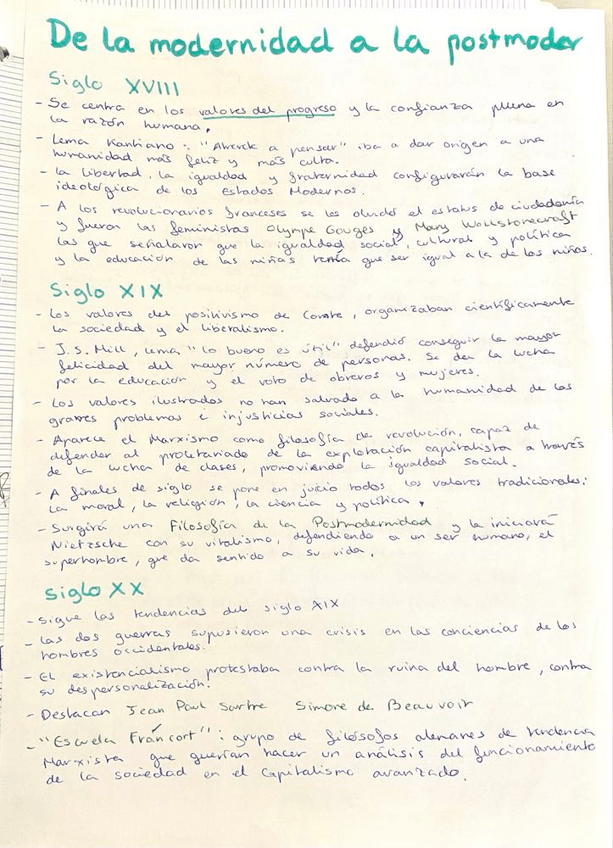 De la modernidad a la postmoder
Siglo XVIII
- Se centra en los valores del progreso y la confianza plena en
la razón humana.
- Lema Kantiano: "Atrevete a pensar" iba a dar origen a una
humanidad más feliz y más culta.
- La libertad, la igualdad y fraternidad configurarán la base
ideológica de los Estados Modernos.
- A los revolucionarios franceses se les olvidó el estatus de ciudadanía
y fueron las feministas Olympe Gouges y Mary Wollstonecraft
las que señalaron que la igualdad social, cultural y política
y la educación de las niñas tenía que ser igual a la de los niños.
Siglo XIX
- Los valores del positivismo de Comte, organizaban científicamente
la sociedad y el liberalismo.
- J.S. Mill, lema "lo bueno es útil" defendió conseguir la mayor
felicidad del mayor número de personas. Se da la lucha
por la educación y el voto de obreros y mujeres.
- Los valores ilustrados no han salvado a la humanidad de los
graves problemas e injusticias sociales.
- Aparece el Marxismo como filosofía de revolución, capaz de
defender al proletariado de la explotación capitalista a través
de la lucha de clases, promoviendo la igualdad social.
- A finales de siglo se pone en juicio todos los valores tradicionales:
la moral, la religión, la ciencia y política.
- Surgirá una Filosofía de la Postmodernidad y la iniciará
Nietzsche con su vitalismo, defendiendo a un ser humano, el
superhombre, que da sentido a su vida.
Siglo XX
- Sigue las tendencias del siglo XIX
- Las dos guerras supusieron una crisis en las conciencias de los
hombres occidentales.
- El existencialismo protestaba contra la ruina del hombre, contra
su despersonalización.
- Destacan Jean Paul Sartre Simone de Beauvoir
- "Escuela Fráncort": grupo de filósofos alemanes de tendencia
Marxista que querían hacer un análisis del funcionamiento
de la sociedad en el Capitalismo avanzado.